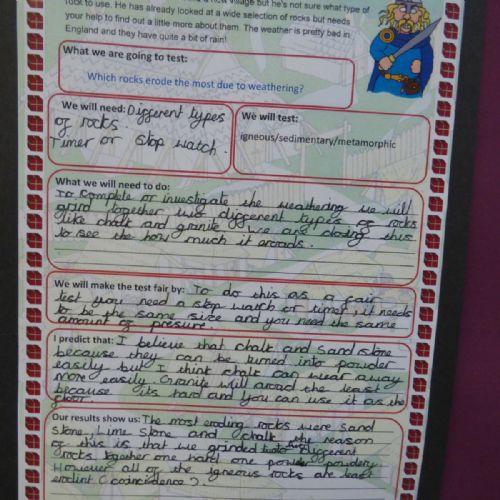 village but he's not sure what type of
rock to use. He has already looked at a wide selection of rocks but needs
your help to find out a little more about them. The weather is pretty bad in
England and they have quite a bit of rain!
What we are going to test:
Which rocks erode the most due to weathering?
We will need: Different types
of rocks.
Timer or stop watch.
We will test:
igneous/sedimentary/metamorphic
What we will need to do:
To complete or investigate the weathering we will
grind together two different types of rocks
like chalk and granite. We are doing this
to see the how much it eroads.
We will make the test fair by: To do this as a fair
test you need a stop watch or timer, it needs
to be the same size and you need the same
amount of presure.
I predict that: I believe that chalk and sand stone
because they can be turned into powder
easily but I think chalk can wear away
more easily. Granite will aroad the least
because its hard and you can use it as the
floor.
Our results show us: The most eroding rocks were sand
stone, lime stone and chalk the reason
of this is that we grinded two different
rocks together one hard one powdery
However all of the igneous rocks are least
erodint (coincidence?).